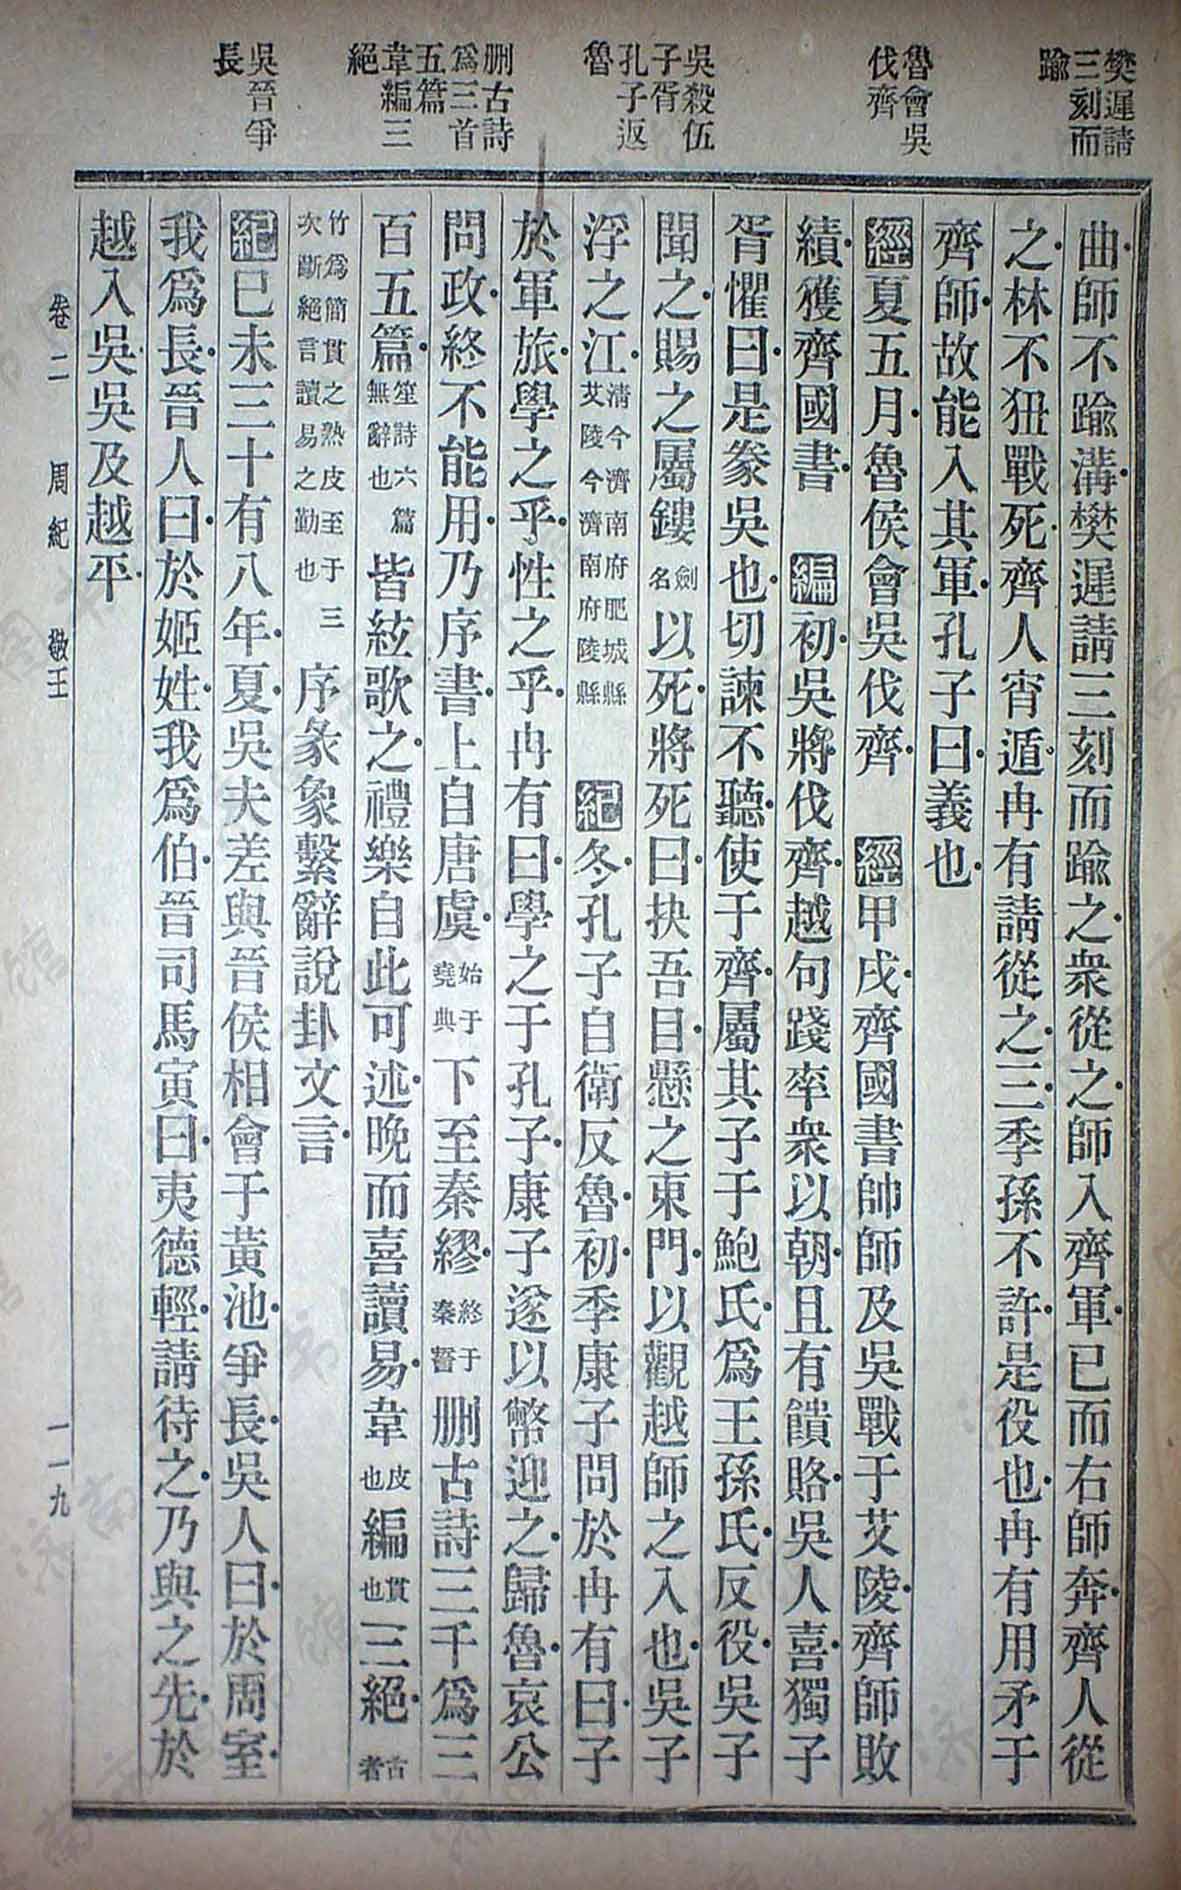 樊遲請
三刻而
踰
魯會吳
伐齊
吳殺伍
子胥
孔子返
魯
刪古詩
為三百
五篇
韋編三
絕
吳晉爭
長
曲師不踰溝樊遲請三刻而踰之衆從之師入齊軍已而右師奔齊人從
之林不狃戰死齊人宵遁冉有請從之三季孫不許是役也冉有用矛于
齊師故能入其軍孔子曰義也
經夏五月魯侯會吳伐齊 經甲戌齊國書帥師及吳戰于艾陵齊師敗
績獲齊國書 編初吳將伐齊越句踐率衆以朝且有饋賂吳人喜獨子
胥懼曰是豢吳也切諫不聽使于齊屬其子于鮑氏為王孫氏反役吳子
聞之賜之屬鏤劍名以死將死曰抉吾目懸之東門以觀越師之入也吳子
浮之江清今濟南府肥城縣艾陵今濟南府陵縣 紀冬孔子自衛反魯初季康子問於冉有曰子
於軍旅學之乎性之乎冉有曰學之于孔子康子遂以幣迎之歸魯哀公
問政終不能用乃序書上自唐虞始于堯典下至秦繆終于秦誓刪古詩三千為三
百五篇笙詩六篇無辭也皆絃歌之禮樂自此可述晚而喜讀易韋皮也編貫也三絕古者
竹為簡貫之熟皮至于三次斷絕言讀易之勤也序彖象繫辭說卦文言
紀己未三十有八年夏吳夫差與晉侯相會于黃池爭長吳人曰於周室
我為長晉人曰於姬姓我為伯晉司馬寅曰夷德輕請待之乃與之先於
越入吳吳及越平
卷二 周紀 敬王 一一九